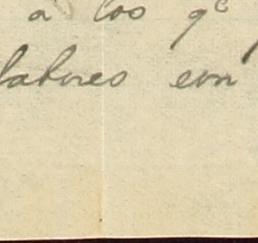 a los qe
labores con